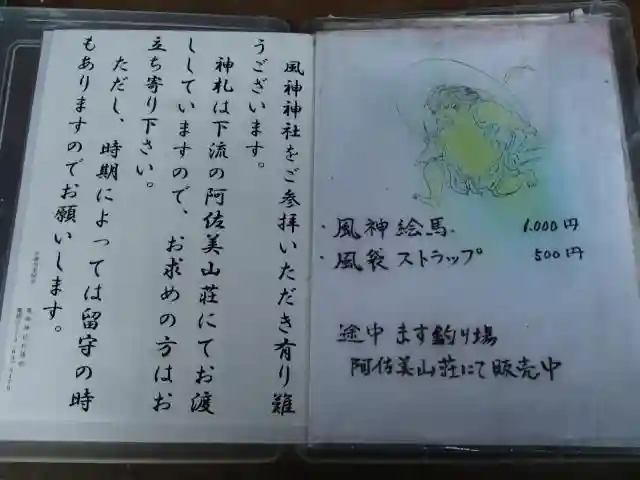 風神神社をご参拝いただき有り難
うございます。
神札は下流の阿佐美山荘にてお渡
ししていますので、お求めの方はお
立ち寄り下さい。
ただし、時期によっては留守の時
もありますのでお願いします。
・風神絵馬. 1.000円
・風袋ストラップ 500円
途中 ます釣り場
阿佐美山荘にて販売中